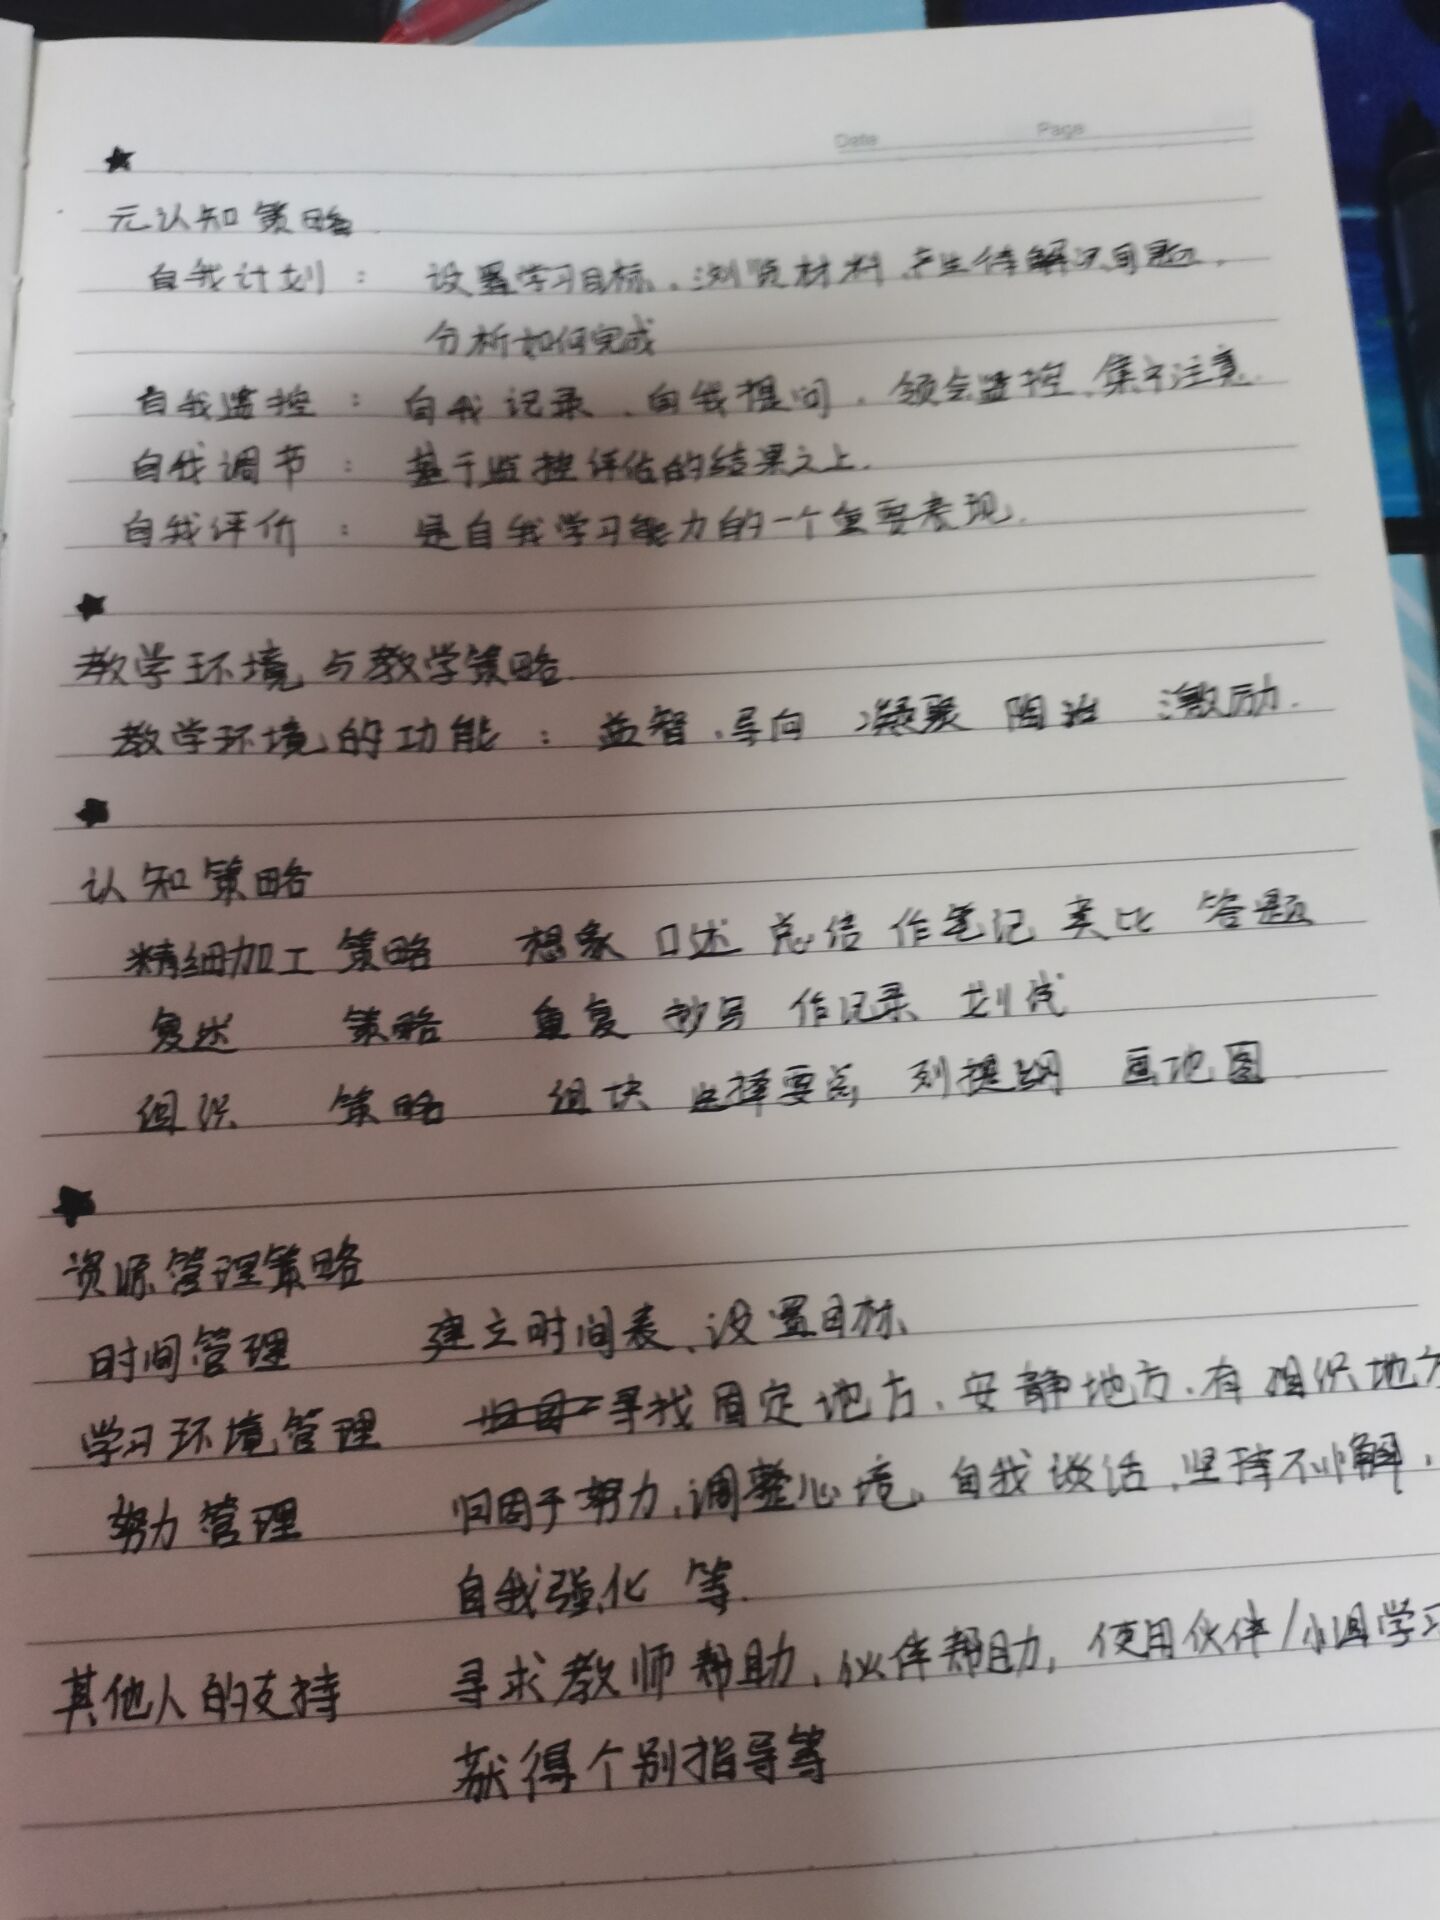 Date Page
★
元认知策略
自我计划： 设置学习目标、浏览材料、产生待解决问题、
分析如何完成
自我监控： 自我记录、自我提问、领会监控、集中注意.
自我调节： 基于监控评估的结果之上.
自我评价： 是自我学习能力的一个重要表现.
★
教学环境与教学策略.
教学环境的功能： 益智、导向 凝聚 陶冶 激励.
★
认知策略
精细加工 策略 想象 口述 总结 作笔记 类比 答题
复述 策略 重复 抄写 作记录 划线
组织 策略 组块 选择要点 列提纲 画地图
★
资源管理策略
时间管理 建立时间表、设置目标
学习环境管理 寻找固定地方、安静地方、有组织地方
努力管理 归因于努力、调整心境、自我谈话、坚持不懈、
自我强化 等.
其他人的支持 寻求教师帮助、伙伴帮助、使用伙伴/小组学习
获得个别指导等